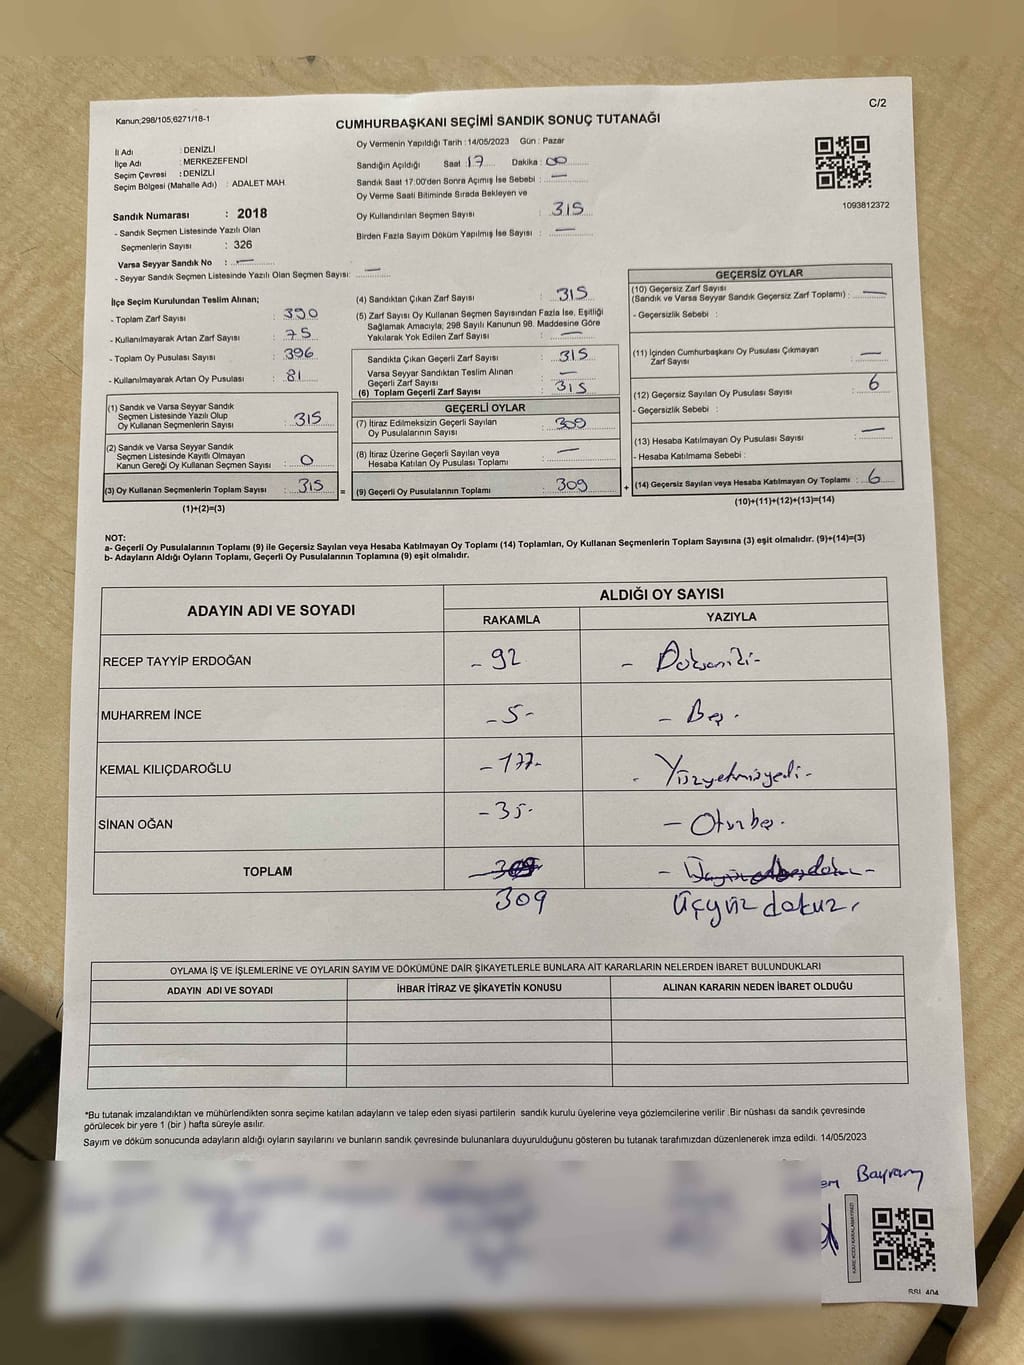 Kanun;298/105,6271/18-1
C/2
CUMHURBAŞKANI SEÇİMİ SANDIK SONUÇ TUTANAĞI
İl Adı : DENİZLİ
İlçe Adı : MERKEZEFENDİ
Seçim Çevresi : DENİZLİ
Seçim Bölgesi (Mahalle Adı) : ADALET MAH.
Sandık Numarası : 2018
- Sandık Seçmen Listesinde Yazılı Olan
Seçmenlerin Sayısı : 326
Varsa Seyyar Sandık No : —
- Seyyar Sandık Seçmen Listesinde Yazılı Olan Seçmen Sayısı: —
Oy Vermenin Yapıldığı Tarih : 14/05/2023 Gün : Pazar
Sandığın Açıldığı Saat : 17 Dakika : 00
Sandık Saat 17:00'den Sonra Açımış İse Sebebi : —
Oy Verme Saati Bitiminde Sırada Bekleyen ve
Oy Kullandırılan Seçmen Sayısı : 315
Birden Fazla Sayım Döküm Yapılmış İse Sayısı : —
1093812372
İlçe Seçim Kurulundan Teslim Alınan;
- Toplam Zarf Sayısı : 390
- Kullanılmayarak Artan Zarf Sayısı : 75
- Toplam Oy Pusulası Sayısı : 396
- Kullanılmayarak Artan Oy Pusulası : 81
(1) Sandık ve Varsa Seyyar Sandık
Seçmen Listesinde Yazılı Olup
Oy Kullanan Seçmenlerin Sayısı : 315
(2) Sandık ve Varsa Seyyar Sandık
Seçmen Listesinde Kayıtlı Olmayan
Kanun Gereği Oy Kullanan Seçmen Sayısı : 0
(3) Oy Kullanan Seçmenlerin Toplam Sayısı : 315 =
(1)+(2)=(3)
(4) Sandıktan Çıkan Zarf Sayısı : 315
(5) Zarf Sayısı Oy Kullanan Seçmen Sayısından Fazla İse, Eşitliği
Sağlamak Amacıyla; 298 Sayılı Kanunun 98. Maddesine Göre
Yakılarak Yok Edilen Zarf Sayısı : —
Sandıkta Çıkan Geçerli Zarf Sayısı : 315
Varsa Seyyar Sandıktan Teslim Alınan
Geçerli Zarf Sayısı : —
(6) Toplam Geçerli Zarf Sayısı : 315
GEÇERLİ OYLAR
(7) İtiraz Edilmeksizin Geçerli Sayılan
Oy Pusulalarının Sayısı : 309
(8) İtiraz Üzerine Geçerli Sayılan veya
Hesaba Katılan Oy Pusulası Toplamı : —
(9) Geçerli Oy Pusulalarının Toplamı : 309 +
GEÇERSİZ OYLAR
(10) Geçersiz Zarf Sayısı
(Sandık ve Varsa Seyyar Sandık Geçersiz Zarf Toplamı) : —
- Geçersizlik Sebebi :
(11) İçinden Cumhurbaşkanı Oy Pusulası Çıkmayan
Zarf Sayısı : —
(12) Geçersiz Sayılan Oy Pusulası Sayısı : 6
- Geçersizlik Sebebi :
(13) Hesaba Katılmayan Oy Pusulası Sayısı : —
- Hesaba Katılmama Sebebi :
(14) Geçersiz Sayılan veya Hesaba Katılmayan Oy Toplamı : 6
(10)+(11)+(12)+(13)=(14)
NOT:
a- Geçerli Oy Pusulalarının Toplamı (9) ile Geçersiz Sayılan veya Hesaba Katılmayan Oy Toplamı (14) Toplamları, Oy Kullanan Seçmenlerin Toplam Sayısına (3) eşit olmalıdır. (9)+(14)=(3)
b- Adayların Aldığı Oyların Toplamı, Geçerli Oy Pusulalarının Toplamına (9) eşit olmalıdır.
ADAYIN ADI VE SOYADI
ALDIĞI OY SAYISI
RAKAMLA YAZIYLA
RECEP TAYYİP ERDOĞAN - 92 - Doksaniki-
MUHARREM İNCE -5- - Beş.
KEMAL KILIÇDAROĞLU -177- - Yüzyetmişyedi-
SİNAN OĞAN -35- - Otuzbeş.
TOPLAM
309 Üçyüz dokuz.
OYLAMA İŞ VE İŞLEMLERİNE VE OYLARIN SAYIM VE DÖKÜMÜNE DAİR ŞİKAYETLERLE BUNLARA AİT KARARLARIN NELERDEN İBARET BULUNDUKLARI
ADAYIN ADI VE SOYADI İHBAR İTİRAZ VE ŞİKAYETİN KONUSU ALINAN KARARIN NEDEN İBARET OLDUĞU
*Bu tutanak imzalandıktan ve mühürlendikten sonra seçime katılan adayların ve talep eden siyasi partilerin sandık kurulu üyelerine veya gözlemcilerine verilir .Bir nüshası da sandık çevresinde
görülecek bir yere 1 (bir ) hafta süreyle asılır.
Sayım ve döküm sonucunda adayların aldığı oyların sayılarını ve bunların sandık çevresinde bulunanlara duyurulduğunu gösteren bu tutanak tarafımızdan düzenlenerek imza edildi. 14/05/2023
Bayram
KARE KODU KARALAMAYINIZ!